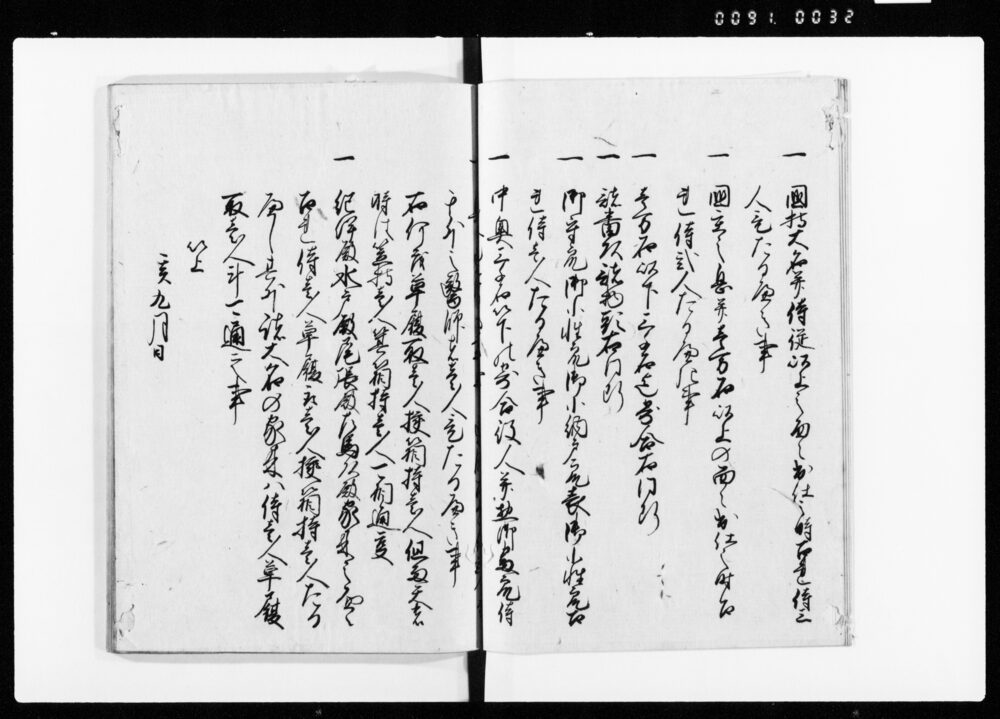 0091 0032
一 國持大名并侍従以上之面々出仕之時召連侍三
人充たるへき事
一 國主之息并壱万石以上の面々出仕之時召
連侍弐人たるへき事
一 壱万石以下三千石迄寄合右同断
一 諸番頭諸物頭右同断
一 御守衆御小性衆御小納戸衆表御小性衆召
連侍壱人たるへき事
一 中奥三千石以下寄合役人并惣御番衆侍
其外之醫師者壱人充たるへき事
右何茂草履取壱人挟箱持壱人但雨天者
時ハ笠持壱人其箱持壱人一同通事
一 紀伊殿水戸殿尾張殿右馬頭殿家来之面々
召連侍壱人草履取壱人挟箱持壱人たる
へし其外諸大名の家来ハ侍壱人草履
取壱人計ニ而通之事
以上
亥九月日